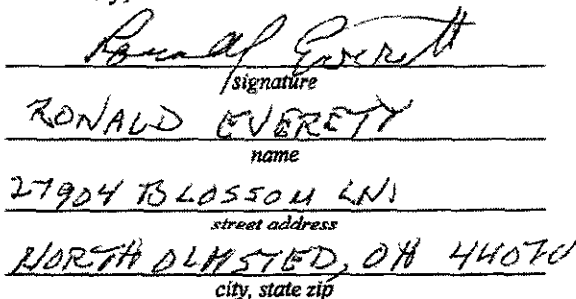 Ronald Everett
signature
RONALD EVERETT
name
27904 BLOSSOM LN
street address
NORTH OLMSTED, OH 44070
city, state zip